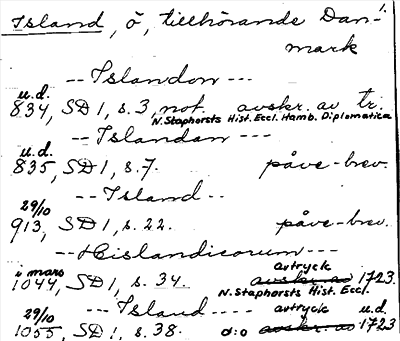 1.
Island, ö, tillhörande Dan-
mark
-- Islandon ---
u.d.
834, SD 1, s. 3, not. avskr. av tr.
N. Staphorsts Hist. Eccl. Hamb. Diplomatica
-- Islandan ---
u.d.
835, SD 1, s. 7. påve-brev.
-- Island --
29/10
913, SD 1, s. 22. påve-brev.
-- Hislandicorum ---
i mars avtryck
1044, SD 1, s. 34. avskr. av 1723.
N. Staphorsts Hist. Eccl.
29/10 --- Island ---- avtryck u.d.
1055, SD 1, s. 38. d:o avskr. av 1723